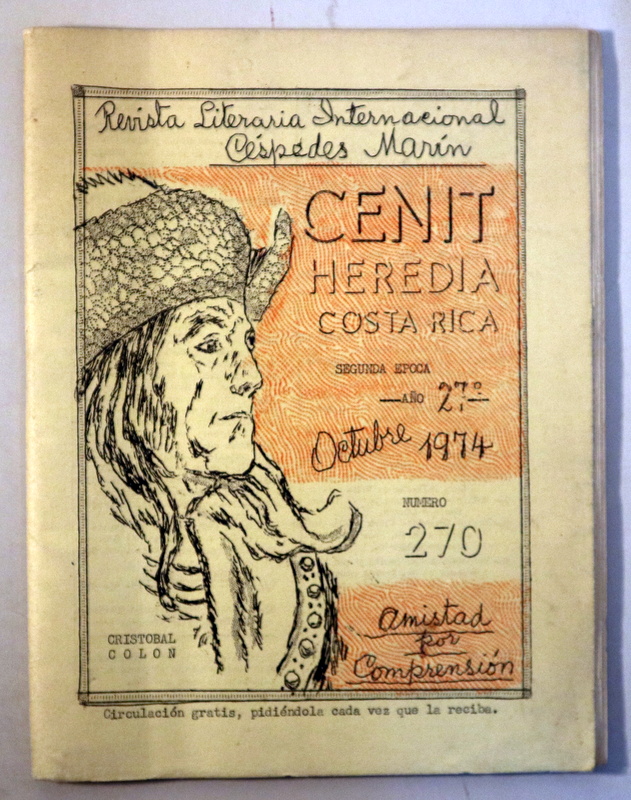 Revista Literaria Internacional
Céspedes Marín
CENIT
HEREDIA
COSTA RICA
SEGUNDA EPOCA
—AÑO 27º—
Octubre 1974
NUMERO
270
Amistad
por
Comprensión
CRISTOBAL
COLON
Circulación gratis, pidiéndola cada vez que la reciba.